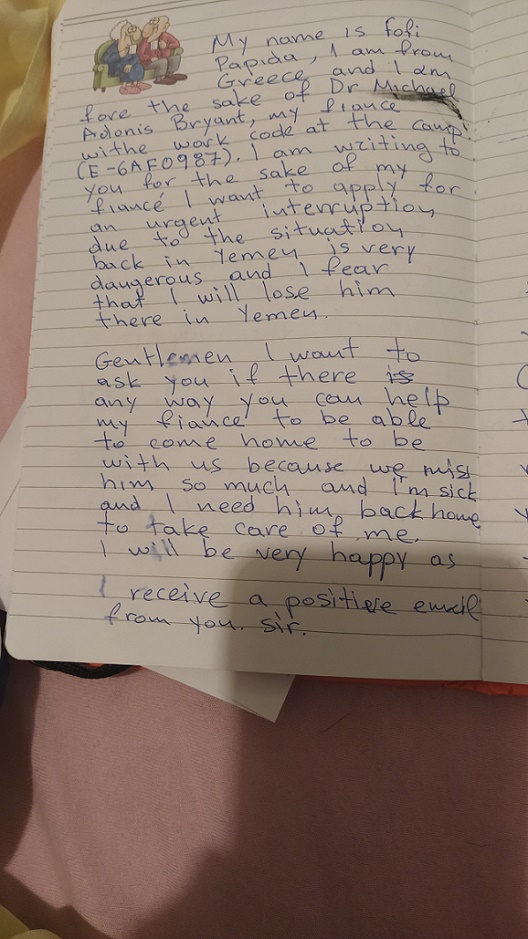 My name is fofi
Papida, I am from
Greece and I am
fore the sake of Dr Michael
Adonis Bryant, my fiance
withe work code at the camp
(E-6AF0987). I am writing to
you for the sake of my
fiancé I want to apply for
an urgent interruption
due to the situation
back in Yemen is very
dangerous and I fear
that I will lose him
there in Yemen.
Gentlemen I want to
ask you if there is
any way you can help
my fiance to be able
to come home to be
with us because we miss
him so much and I'm sick
and I need him back home
to take care of me.
I will be very happy as
I receive a positieve email
from you. sir.